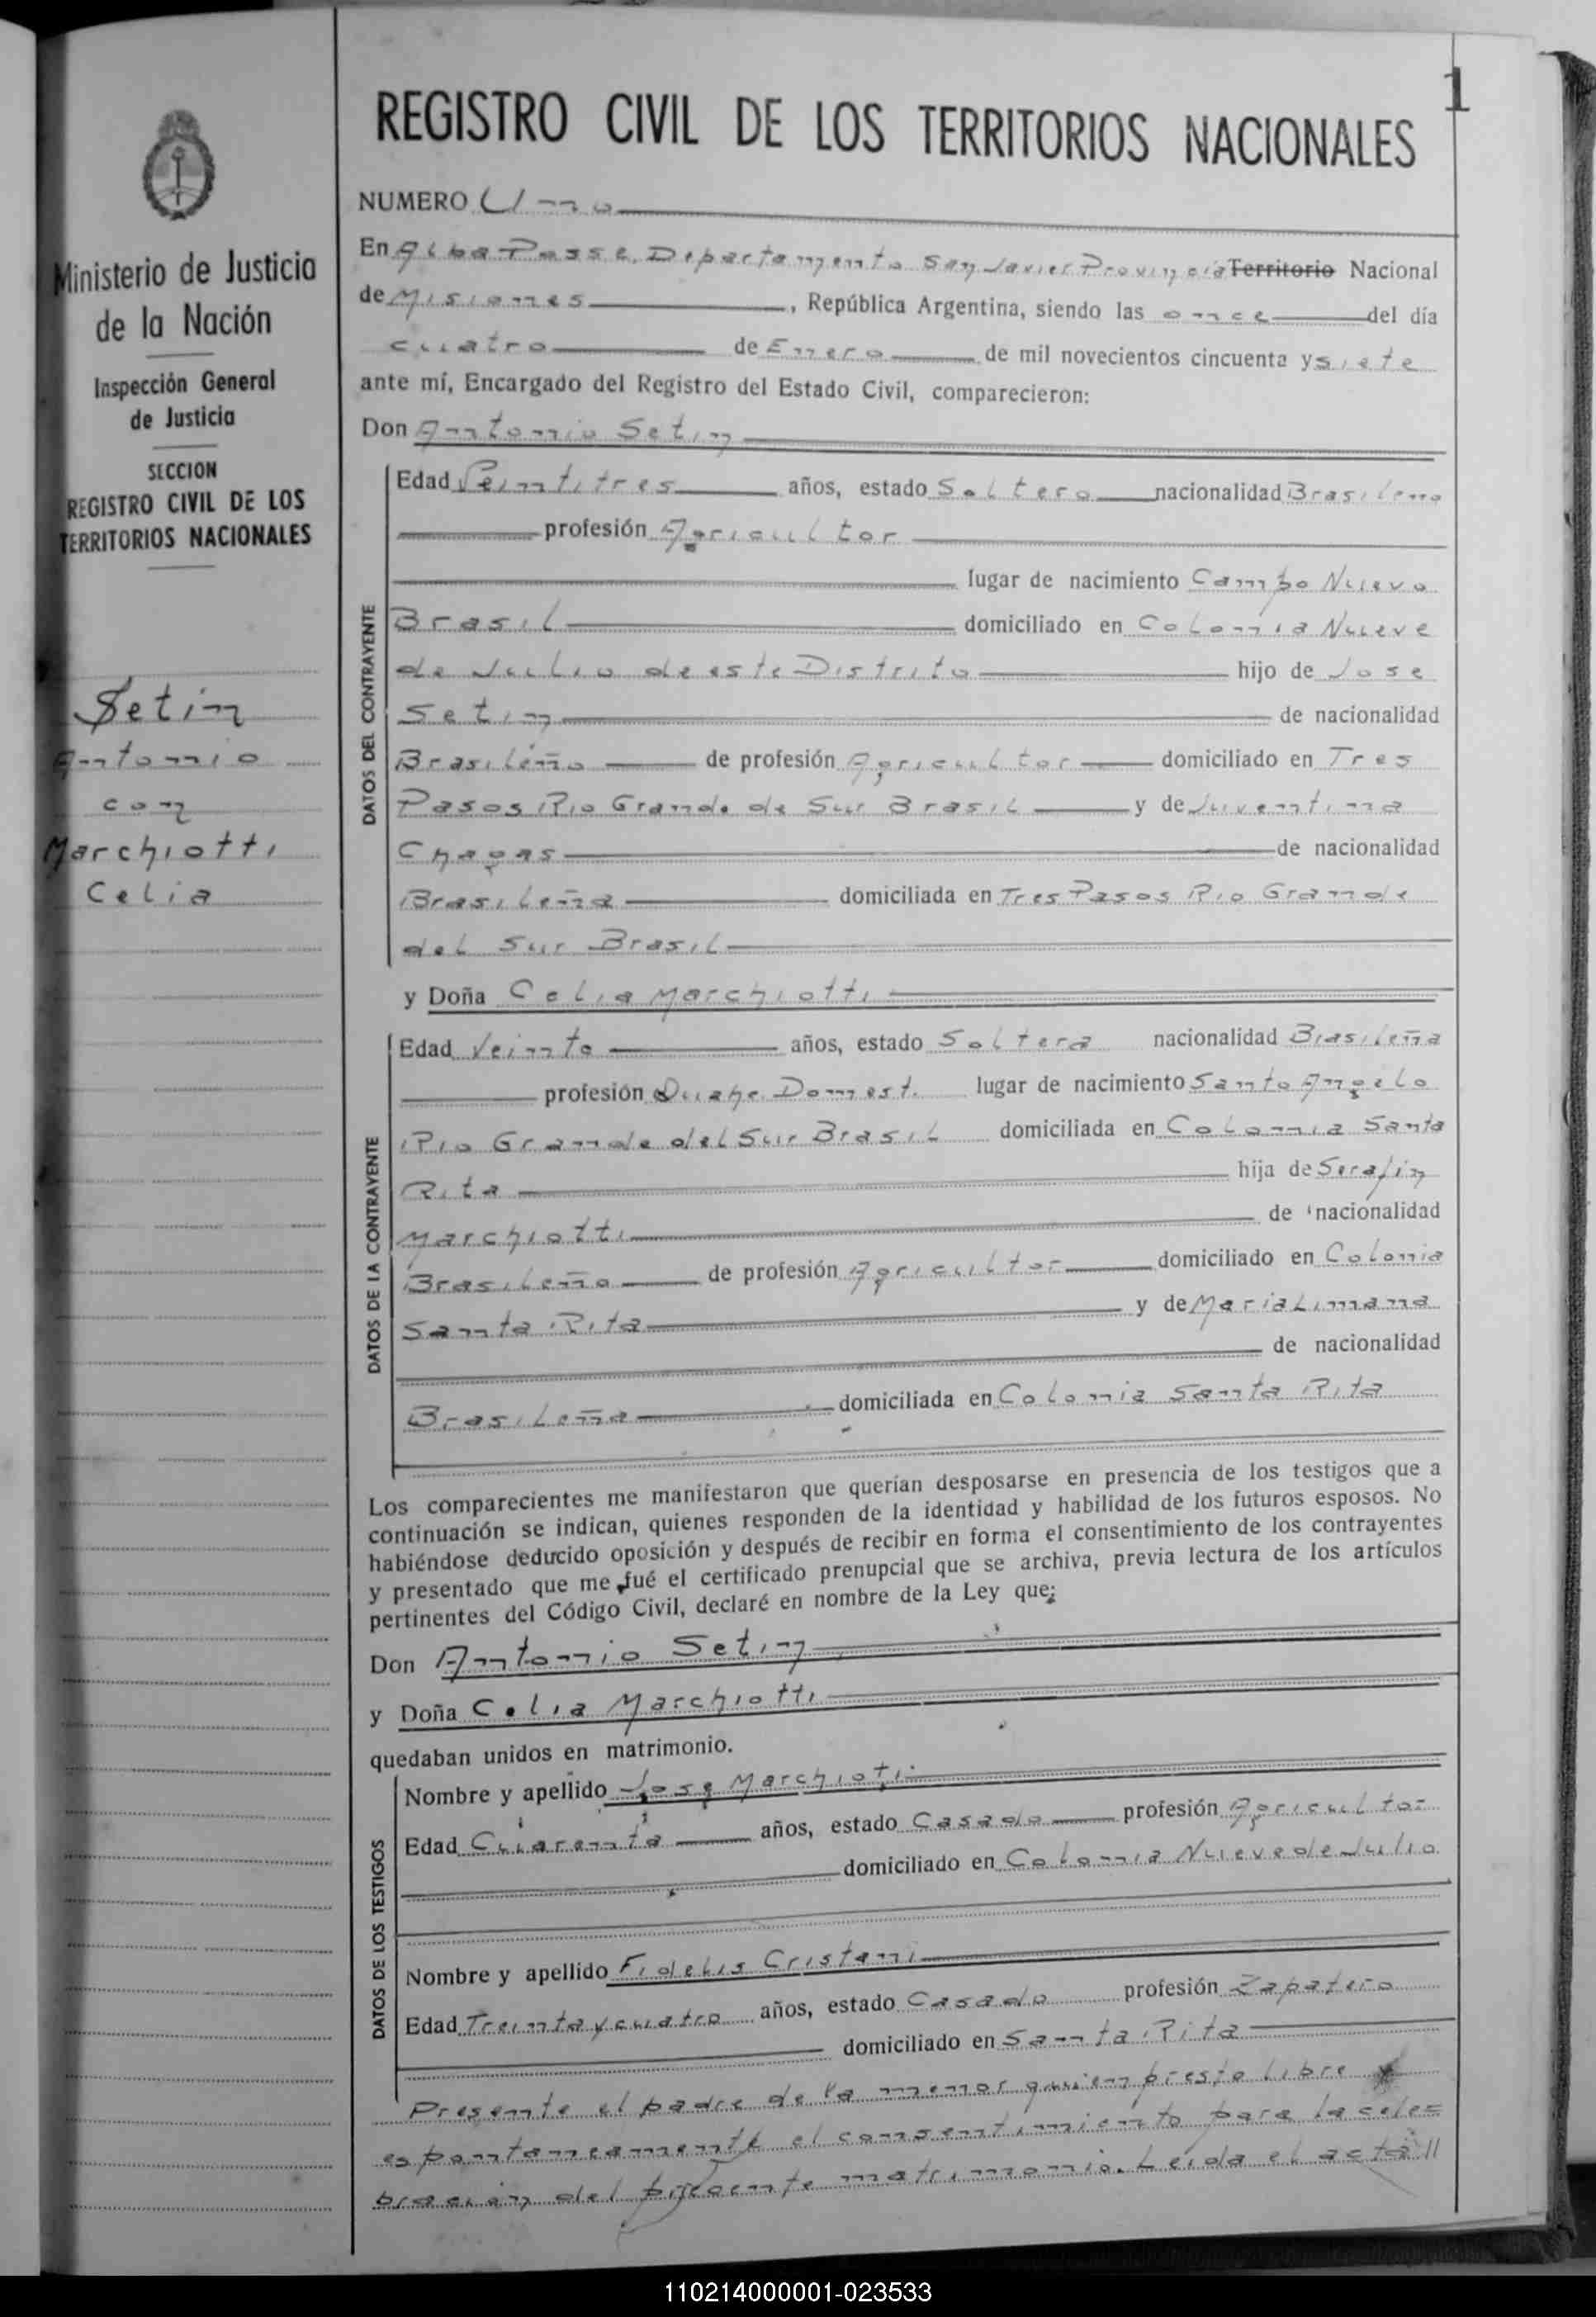 1
Ministerio de Justicia
de la Nación
Inspección General
de Justicia
SECCION
REGISTRO CIVIL DE LOS
TERRITORIOS NACIONALES
Setin
Antonio
con
Marchiotti
Celia
REGISTRO CIVIL DE LOS TERRITORIOS NACIONALES
NUMERO Uno
En Alba Posse, Departamento San Javier Provincia Territorio Nacional
de Misiones, República Argentina, siendo las once del día
cuatro de Enero de mil novecientos cincuenta y siete
ante mí, Encargado del Registro del Estado Civil, comparecieron:
Don Antonio Setin
DATOS DEL CONTRAYENTE
Edad Veintitres años, estado Soltero nacionalidad Brasileno
profesión Agricultor
lugar de nacimiento Campo Nuevo
Brasil domiciliado en Colonia Nueve
de Julio de este Distrito hijo de Jose
Setin de nacionalidad
Brasileño de profesión Agricultor domiciliado en Tres
Pasos Rio Grande de Sur Brasil y de Juventina
Chagas de nacionalidad
Brasileña domiciliada en Tres Pasos Rio Grande
del Sur Brasil
y Doña Celia Marchiotti
DATOS DE LA CONTRAYENTE
Edad Veinte años, estado Soltera nacionalidad Brasileña
profesión Quahe. Domest. lugar de nacimiento Santo Angelo
Rio Grande del Sur Brasil domiciliada en Colonia Santa
Rita hija de Serafin
Marchiotti de nacionalidad
Brasileño de profesión Agricultor domiciliado en Colonia
Santa Rita y de Maria Limana
de nacionalidad
Brasileña domiciliada en Colonia Santa Rita
Los comparecientes me manifestaron que querían desposarse en presencia de los testigos que a
continuación se indican, quienes responden de la identidad y habilidad de los futuros esposos. No
habiéndose deducido oposición y después de recibir en forma el consentimiento de los contrayentes
y presentado que me fué el certificado prenupcial que se archiva, previa lectura de los artículos
pertinentes del Código Civil, declaré en nombre de la Ley que;
Don Antonio Setin
y Doña Celia Marchiotti
quedaban unidos en matrimonio.
DATOS DE LOS TESTIGOS
Nombre y apellido Jose Marchioti
Edad Cuarenta años, estado Casado profesión Agricultor
domiciliado en Colonia Nueve de Julio
Nombre y apellido Fidelis Cristani
Edad Treinta y cuatro años, estado Casado profesión Zapatero
domiciliado en Santa Rita
Presente el padre de la menor quien presto libre y
espontaneamente el consentimiento para la cele=
bracion del presente matrimonio. Leida el acta //
110214000001-023533